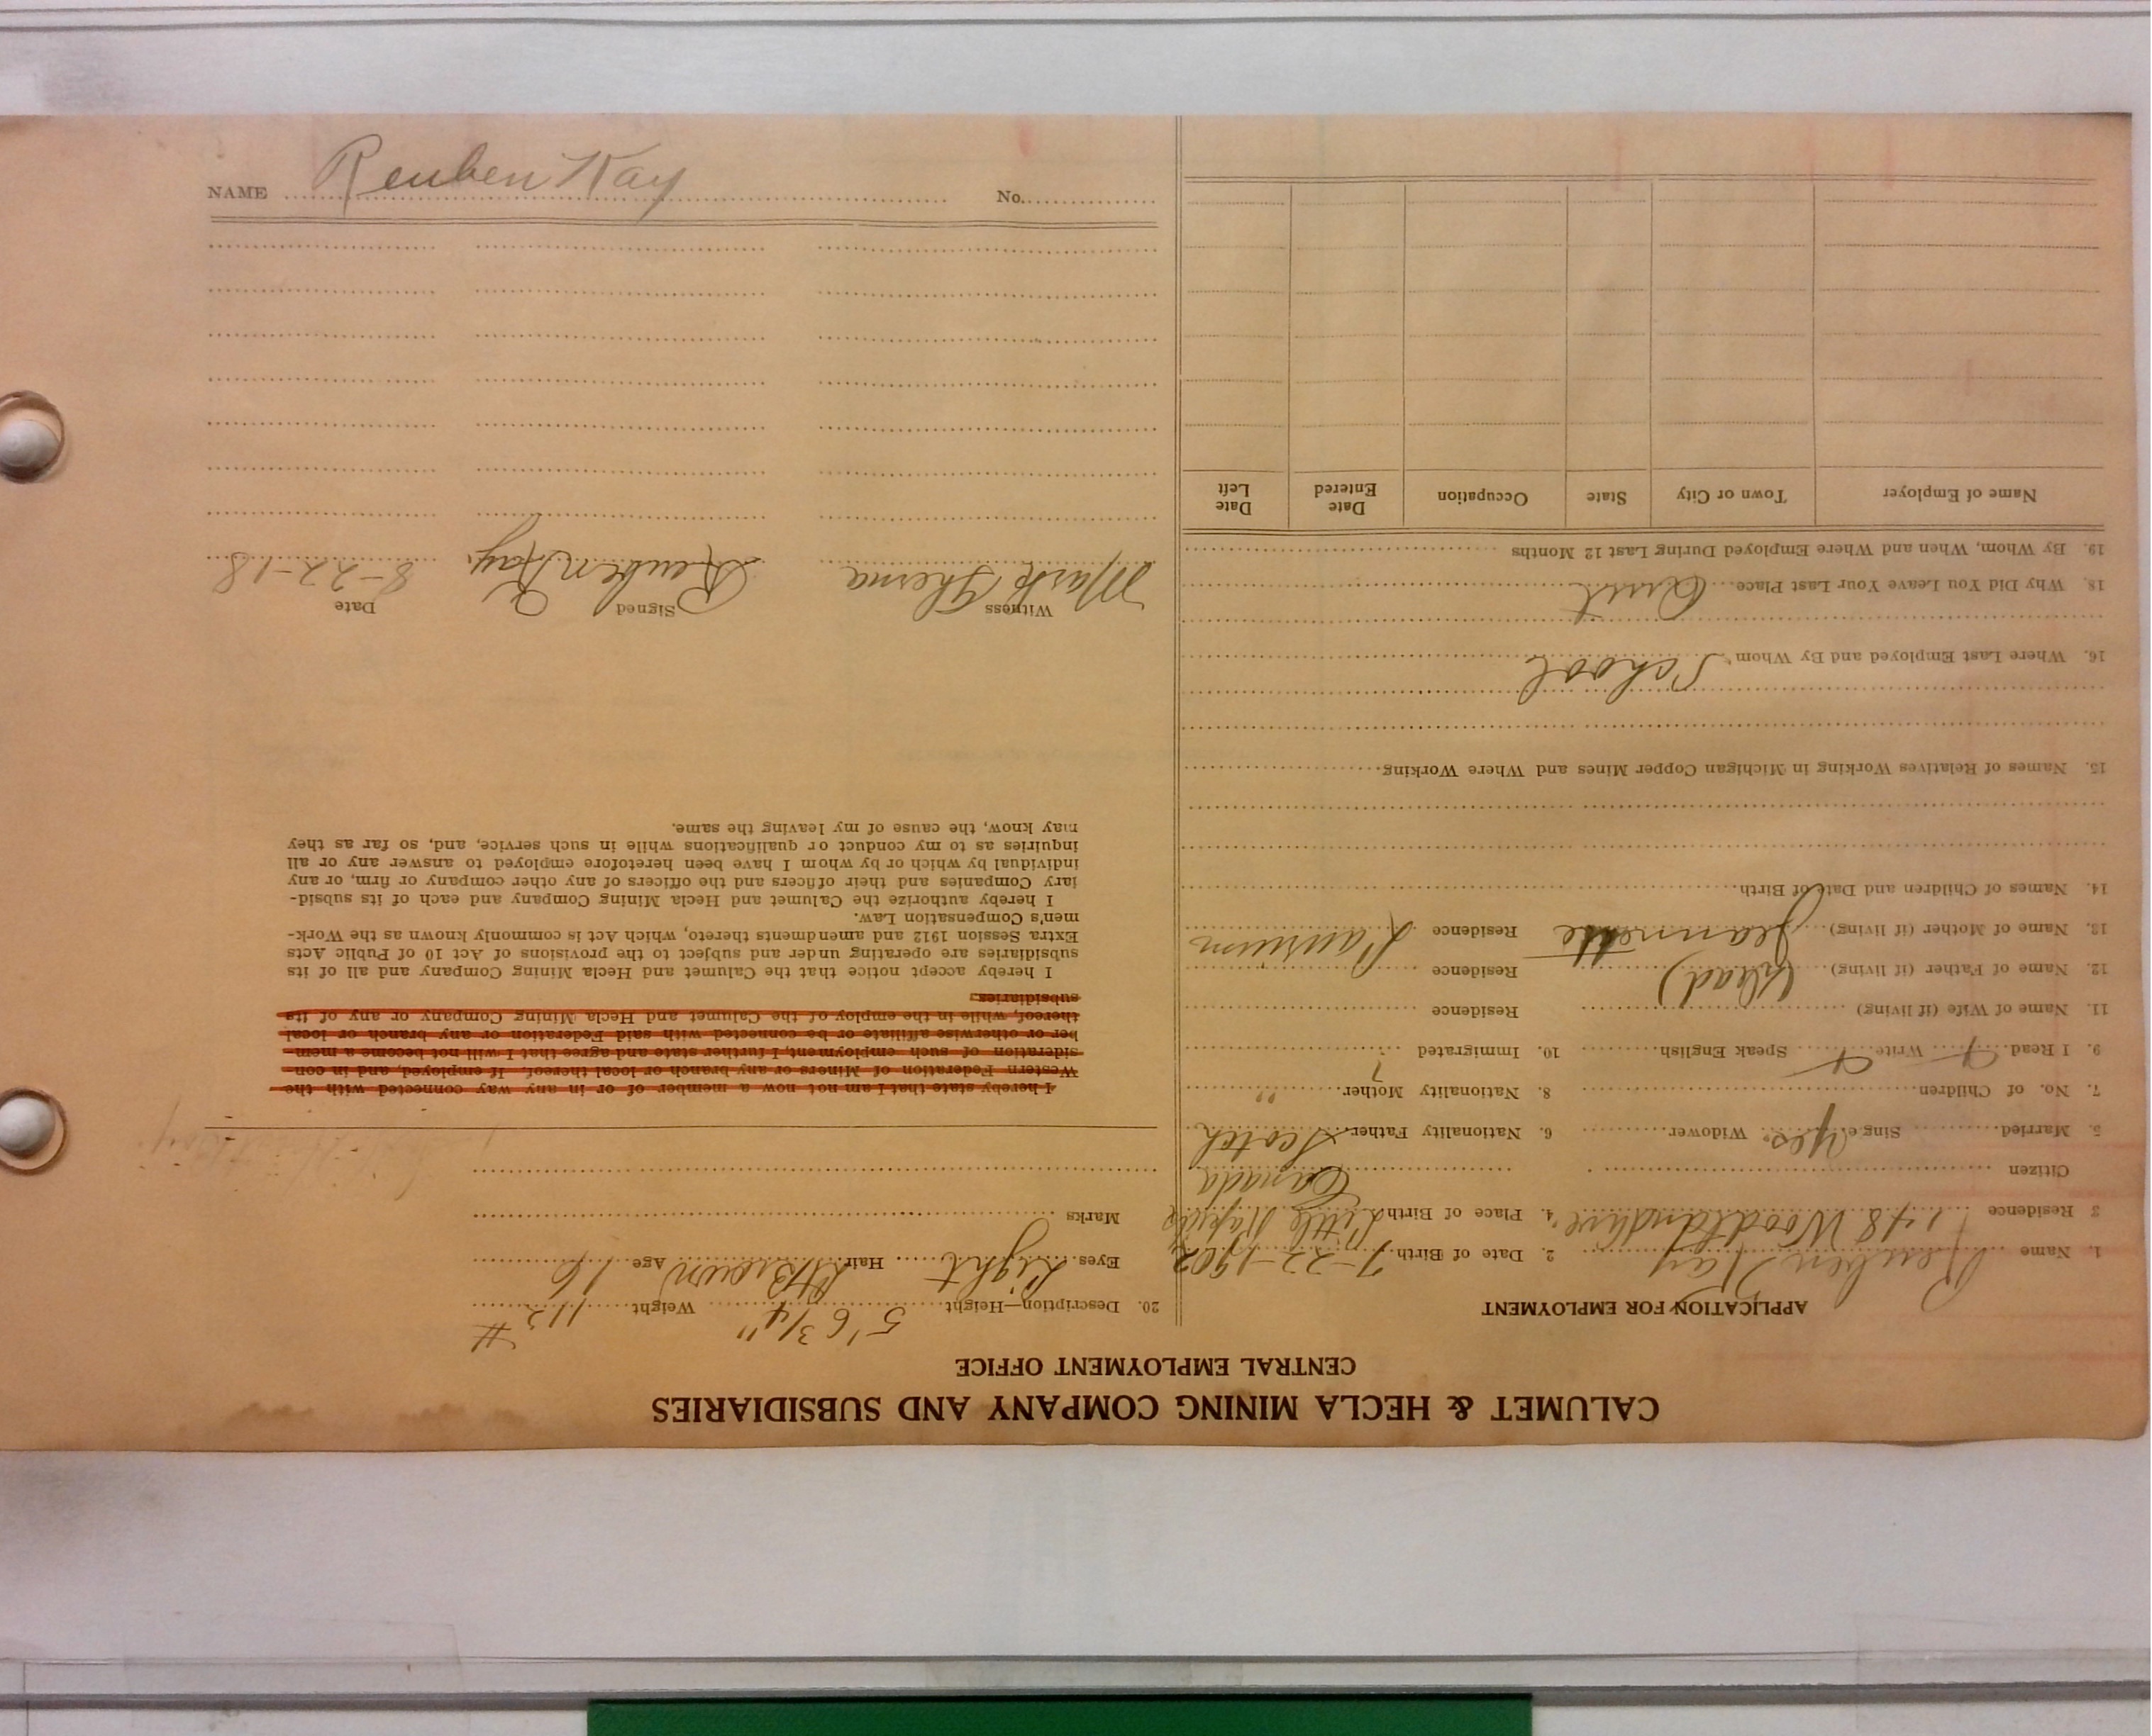 CALUMET & HECLA MINING COMPANY AND SUBSIDIARIES
CENTRAL EMPLOYMENT OFFICE
APPLICATION FOR EMPLOYMENT
1. Name Reuben Kay 2. Date of Birth 7-22-1902
3 Residence 148 Woodland Ave. 4. Place of Birth Little Rapids
Citizen Canada
5. Married Single Yes. Widower 6. Nationality Father Scotch
7. No. of Children 8. Nationality Mother "
9. I Read Write Speak English 10. Immigrated ?
11. Name of Wife (if living) Residence
12. Name of Father (if living) (Dead) Residence
13. Name of Mother (if living) Jeannette Residence Laurium
14. Names of Children and Date of Birth
15. Names of Relatives Working in Michigan Copper Mines and Where Working
16. Where Last Employed and By Whom School
18. Why Did You Leave Your Last Place Quit
19. By Whom, When and Where Employed During Last 12 Months
Name of Employer Town or City State Occupation Date Entered Date Left
20. Description—Height 5' 6 3/4" Weight 112 #
Eyes Light Hair Lt Brown Age 16
Marks
I hereby state that I am not now a member of or in any way connected with the
Western Federation of Miners or any branch or local thereof. If employed, and in con-
sideration of such employment, I further state and agree that I will not become a mem-
ber or otherwise affiliate or be connected with said Federation or any branch or local
thereof, while in the employ of the Calumet and Hecla Mining Company or any of its
subsidiaries.
I hereby accept notice that the Calumet and Hecla Mining Company and all of its
subsidiaries are operating under and subject to the provisions of Act 10 of Public Acts
Extra Session 1912 and amendments thereto, which Act is commonly known as the Work-
men's Compensation Law.
I hereby authorize the Calumet and Hecla Mining Company and each of its subsid-
iary Companies and their officers and the officers of any other company or firm, or any
individual by which or by whom I have been heretofore employed to answer any or all
inquiries as to my conduct or qualifications while in such service, and, so far as they
may know, the cause of my leaving the same.
Witness Signed Date
Mark Reuben Kay. 8-22-18
NAME Reuben Kay No.